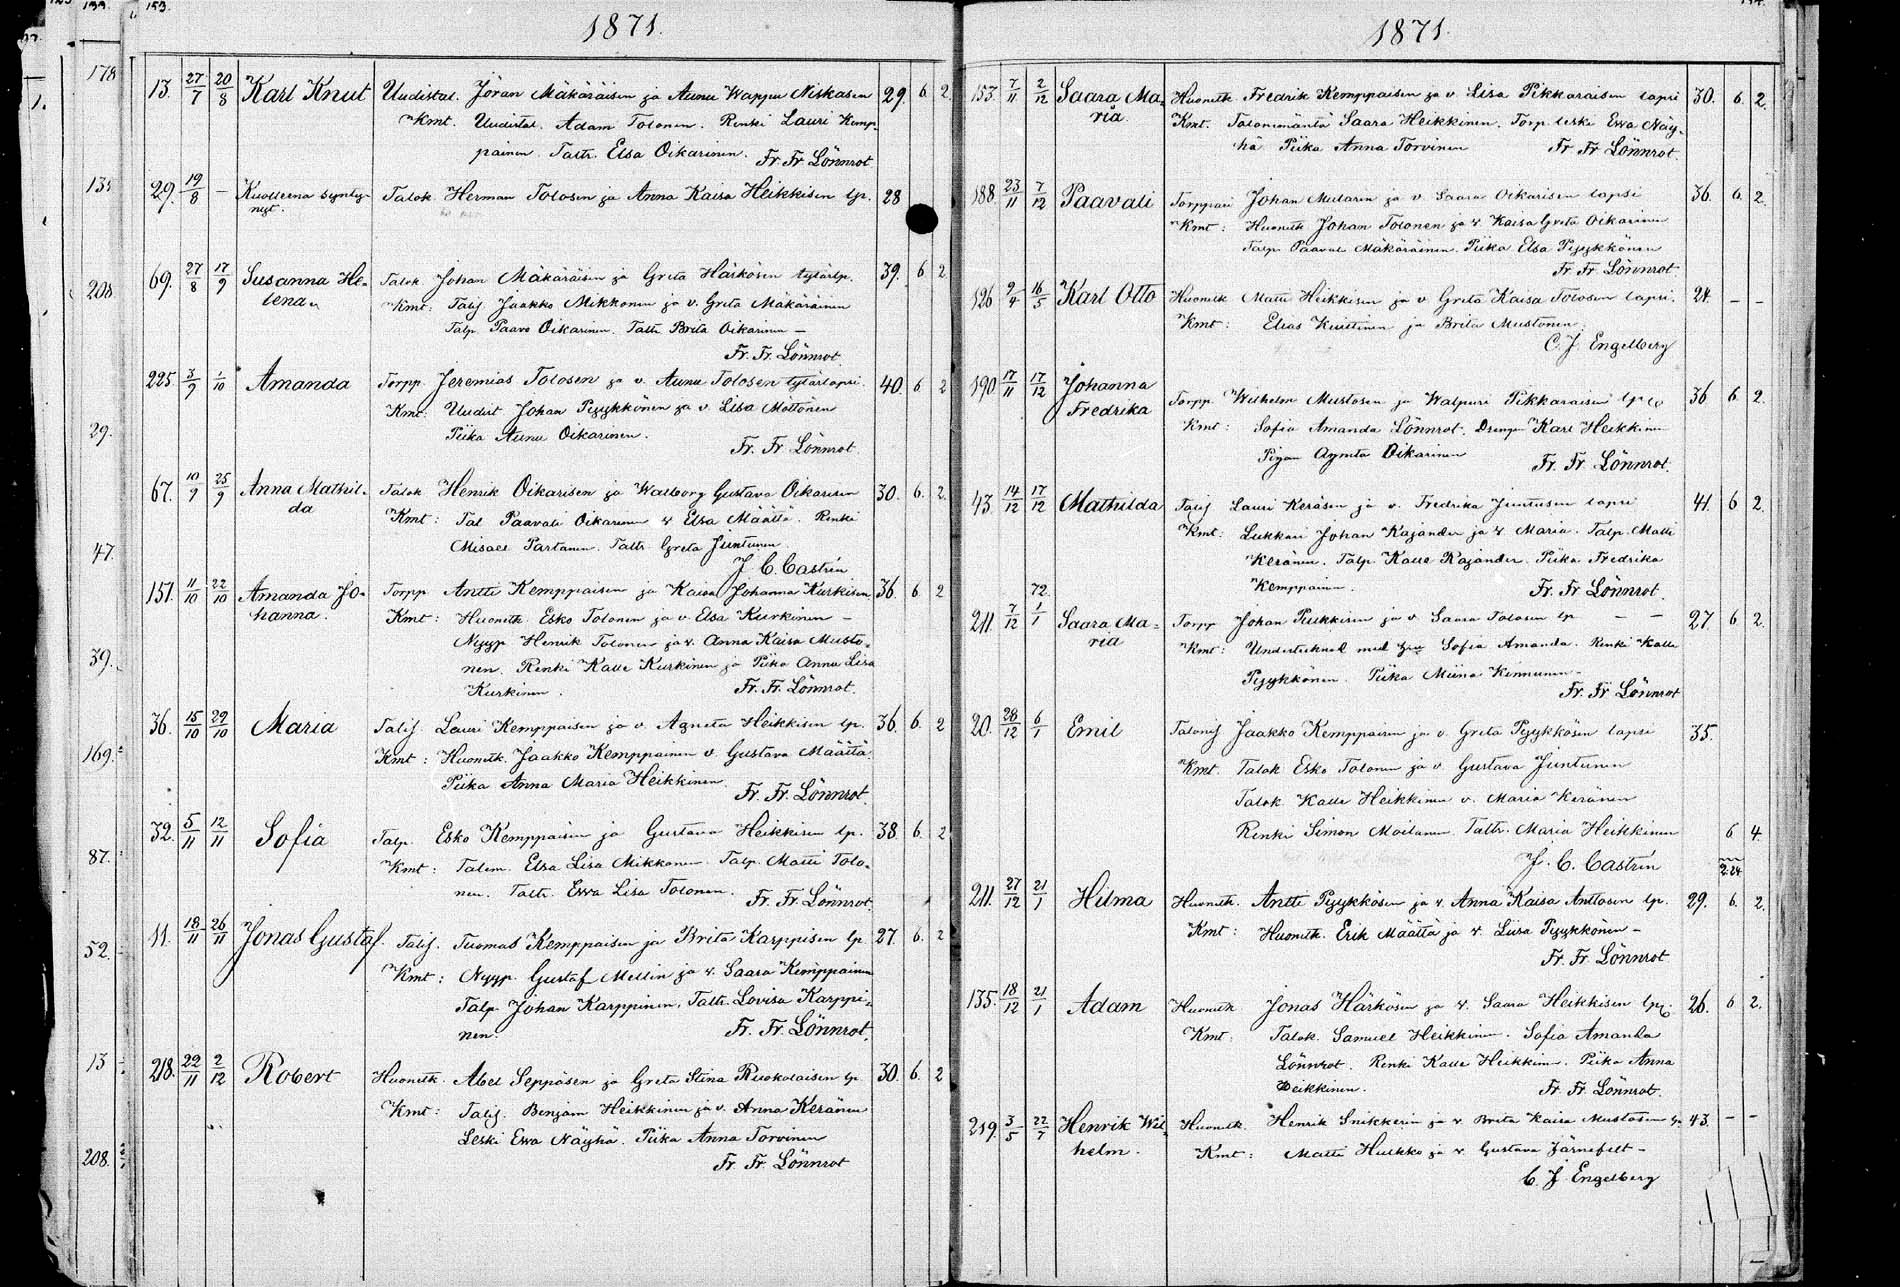 153.
1871.
13. 27/7 20/8 Karl Knut Uudistal. Jöran Mäkäräisen ja Aunu Wappu Niskasen 29. 6. 2.
Kmt. Uudistal. Adam Tolonen. Renki Lauri Kemp-
painen. Taltr. Elsa Oikarinen. Fr. Fr. Lönnrot
29. 19/8 – Kuolleena synty- Talok Herman Tolosen ja Anna Kaisa Heikkisen lp. 28
nyt.
69. 27/8 17/9 Susanna He- Talok Johan Mäkäräisen ja Greta Härkösen tytärlp. 39. 6 2
lena Kmt: Talij Jaakko Mikkonen ja v. Greta Mäkäräinen
Talp. Paavo Oikarinen. Taltr. Brita Oikarinen –
Fr. Fr. Lönnrot
225. 3/9 1/10 Amanda Torpp Jeremias Tolosen ja v. Aunu Tolosen tytärlapsi. 40. 6 2
Kmt: Uudist Johan Pyykkönen ja v. Lisa Möttönen
Piika Aunu Oikarinen.
Fr. Fr. Lönnrot
67. 10/9 25/9 Anna Mathil- Talok Henrik Oikarisen ja Walborg Gustava Oikarisen 30. 6. 2.
da Kmt: Tal Paavali Oikarinen v Elsa Määttä. Renki
Misael Partanen. Taltr. Greta Juntunen
J. C. Castrén
151. 11/10 22/10 Amanda Jo- Torpp Antti Kemppaisen ja Kaisa Johanna Kurkisen 36. 6 2
hanna. Kmt: Huonetk Esko Tolonen ja v. Elsa Kurkinen –
Nyyp Henrik Tolonen ja v. Anna Kaisa Musto-
nen. Renki Kalle Kurkinen ja Piika Anna Lisa
Kurkinen. Fr. Fr. Lönnrot.
36. 15/10 29/10 Maria Talij. Lauri Kemppaisen ja v. Agneta Heikkisen lp. 36. 6. 2
Kmt: Huonetk. Jaakko Kemppainen v. Gustava Määttä.
Piika Anna Maria Heikkinen
Fr. Fr. Lönnrot.
32. 5/11 12/11 Sofia Talp. Esko Kemppaisen ja Gustava Heikkisen lp. 38. 6. 2
Kmt: Talem. Elsa Lisa Mikkonen. Talp. Matti Tolo-
nen. Taltr. Ewa Lisa Tolonen. Fr. Fr. Lönnrot.
11. 18/11 26/11 Jonas Gustaf. Talij. Tuomas Kemppaisen ja Brita Karppisen lp. 27. 6. 2
Kmt: Nyyp. Gustaf Mellin ja v. Saara Kemppainen
Talp. Johan Karppinen. Taltr. Lovisa Karppi-
nen. Fr. Fr. Lönnrot.
218. 22/11 2/12 Robert Huonetk. Abel Seppäsen ja Greta Stina Ruokolaisen lp. 30. 6. 2
Kmt: Talij. Benjam Heikkinen ja v. Anna Keränen
Leski Ewa Näyhä. Piika Anna Torvinen
Fr. Fr. Lönnrot
178
135
208
29.
47.
39.
169.
87.
52.
13
208.
1871.
153. 7/11 2/12 Saara Ma- Huonetk Fredrik Kemppaisen ja v. Lisa Pikkaraisen lapsi 30. 6. 2.
ria. Kmt. Talonemäntä Saara Heikkinen. Torp. leski Ewa Näy-
hä Piika Anna Torvinen Fr. Fr. Lönnrot.
188. 23/11 7/12 Paavali Torppari Johan Mularin ja v. Saara Oikarisen lapsi 36. 6. 2.
Kmt: Huonetk Johan Tolonen ja v. Kaisa Greta Oikarinen
Talp. Paaval Mäkäräinen. Piika Elsa Pyykkönen
Fr. Fr. Lönnrot
126 9/4 16/5 Karl Otto Huonetk Matti Heikkisen ja v. Greta Kaisa Tolosen lapsi. 24. – –
Kmt: Elias Kuittinen ja Brita Mustonen
C. J. Engelberg
190. 17/11 17/12 Johanna Torpp. Wilhelm Mustosen ja Walpuri Pikkaraisen lp. 36 6. 2.
Fredrika Kmt: Sofia Amanda Lönnrot. Drengen Karl Heikkinen
Pigan Agneta Oikarinen Fr. Fr. Lönnrot.
43. 14/12 17/12 Mathilda Talij Lauri Keräsen ja v. Fredrika Juntusen lapsi 41. 6 2.
Kmt: Lukkari Johan Kajander ja v Maria. Talp. Matti
Keränen. Talp Kalle Kajander. Piika Fredrika
Kemppainen. Fr. Fr. Lönnrot.
72.
211. 7/12 1/1 Saara Ma- Torpp Johan Pukkisen ja v Saara Tolosen lp – – 27. 6 2.
ria Kmt: Undertecknad med fru Sofia Amanda. Renki Kalle
Pyykkönen. Piika Miina Kinnunen –
Fr. Fr. Lönnrot
20. 28/12 6/1 Emil Talonij Jaakko Kemppaisen ja v. Greta Pyykkösen lapsi 35.
Kmt. Talok Esko Tolonen ja v. Gustava Juntunen
Talok Kalle Heikkinen v. Maria Keränen
Renki Simon Moilanen. Taltr. Maria Heikkinen 6 4.
J. C. Castrén 2:24
211. 27/12 21/1 Hilma Huonetk. Antti Pyykkösen ja v. Anna Kaisa Anttosen lp. 29. 6. 2.
Kmt: Huonetk. Erik Määttä ja v. Liisa Pyykkönen –
Fr. Fr. Lönnrot
135. 18/12 21/1 Adam Huonetk Jonas Härkösen ja v. Saara Heikkisen lp. 26. 6 2.
Kmt: Talok. Samuel Heikkinen. Sofia Amanda
Lönnrot. Renki Kalle Heikkinen. Piika Anna
Heikkinen. Fr. Fr. Lönnrot.
219. 3/5 22/7 Henrik Wil- Huonetk. Henrik Snikkerin ja v Brita Kaisa Mustosen lp 43. – –
helm. Kmt: Matti Hulkko ja v. Gustava Järnefelt –
C. J. Engelberg